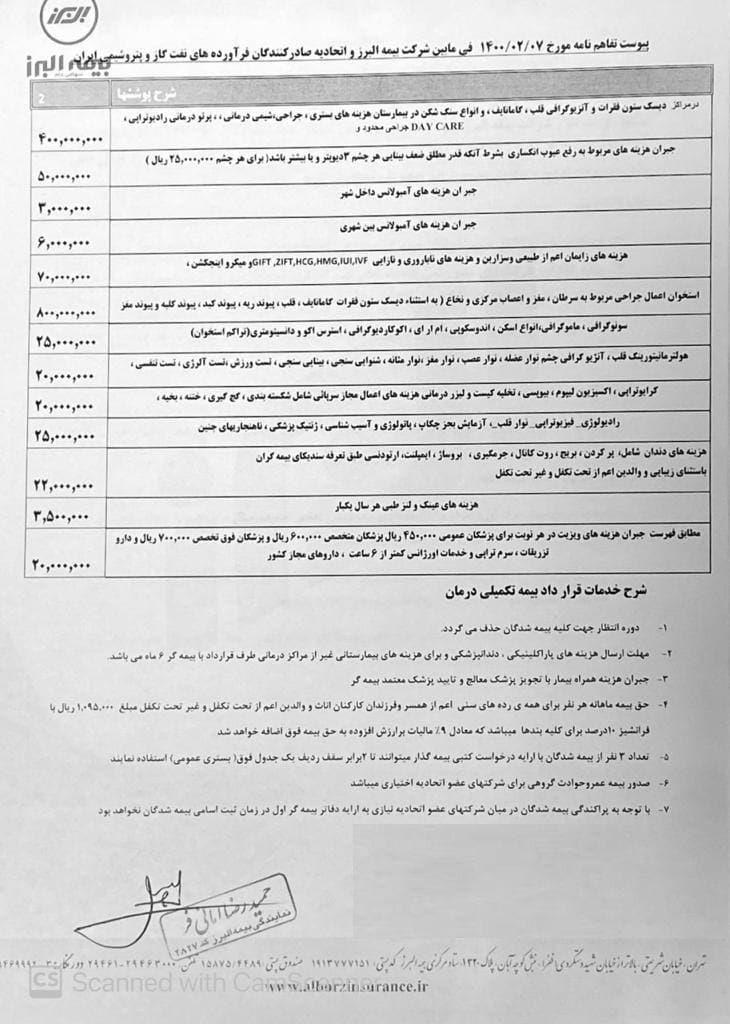 البرز
بیمه البرز
سهامی عام
پیوست تفاهم نامه مورخ ۱۴۰۰/۰۲/۰۷ فی مابین شرکت بیمه البرز و اتحادیه صادرکنندگان فرآورده های نفت گاز و پتروشیمی ایران
شرح پوششها 2
دیسک ستون فقرات و آنژیوگرافی قلب ، گامانایف ، و انواع سنگ شکن در بیمارستان هزینه های بستری ، جراحی،شیمی درمانی ، ، پرتو درمانی رادیوتراپی ، درمراکز
جراحی محدود و DAY CARE
۴۰۰,۰۰۰,۰۰۰
جبران هزینه های مربوط به رفع عیوب انکساری بشرط آنکه قدر مطلق ضعف بینایی هر چشم ۳دیوپتر و یا بیشتر باشد( برای هر چشم ۲۵,۰۰۰,۰۰۰ ریال )
۵۰,۰۰۰,۰۰۰
جبران هزینه های آمبولانس داخل شهر
۳,۰۰۰,۰۰۰
جبران هزینه های آمبولانس بین شهری
۶,۰۰۰,۰۰۰
هزینه های زایمان اعم از طبیعی وسزارین و هزینه های ناباروری و نازایی GIFT ,ZIFT,HCG,HMG,IUI,IVFو میکرو اینجکشن ،
۷۰,۰۰۰,۰۰۰
استخوان اعمال جراحی مربوط به سرطان ، مغز و اعصاب مرکزی و نخاع ( به استثناء دیسک ستون فقرات گامانایف ، قلب ، پیوند ریه ، پیوند کبد ، پیوند کلیه و پیوند مغز
۸۰۰,۰۰۰,۰۰۰
سونوگرافی ، ماموگرافی،انواع اسکن ، اندوسکوپی ، ام ار ای ، اکوکاردیوگرافی ، استرس اکو و دانسیتومتری(تراکم استخوان)
۲۵,۰۰۰,۰۰۰
هولترمانیتورینگ قلب ، آنژیو گرافی چشم نوار عضله ، نوار عصب ، نوار مغز ،نوار مثانه ، شنوایی سنجی ، بینایی سنجی ، تست ورزش ،تست آلرژی ، تست تنفسی ،
۲۰,۰۰۰,۰۰۰
کرایوتراپی ، اکسیزیون لیپوم ، بیوپسی ، تخلیه کیست و لیزر درمانی هزینه های اعمال مجاز سرپائی شامل شکسته بندی ، گچ گیری ، ختنه ، بخیه ،
۲۰,۰۰۰,۰۰۰
رادیولوژی_ فیزیوتراپی_ نوار قلب_، آزمایش بجز چکاپ ، پاتولوژی و آسیب شناسی ، ژنتیک پزشکی ، ناهنجاریهای جنین
۲۵,۰۰۰,۰۰۰
هزینه های دندان شامل، پر کردن ، بریج ، روت کانال ، جرمگیری ، بروساژ ، ایمپلنت، ارتودنسی طبق تعرفه سندیکای بیمه گران
باستثنای زیبایی و والدین اعم از تحت تکفل و غیر تحت تکفل
۲۲,۰۰۰,۰۰۰
هزینه های عینک و لنز طبی هر سال یکبار
۳,۵۰۰,۰۰۰
مطابق فهرست جبران هزینه های ویزیت در هر نوبت برای پزشکان عمومی ۴۵۰,۰۰۰ ریال پزشکان متخصص ۶۰۰,۰۰۰ ریال و پزشکان فوق تخصص ۷۰۰,۰۰۰ ریال و دارو
تزریقات ، سرم تراپی و خدمات اورژانس کمتر از ۶ ساعت ، داروهای مجاز کشور
۲۰,۰۰۰,۰۰۰
شرح خدمات قرار داد بیمه تکمیلی درمان
۱- دوره انتظار جهت کلیه بیمه شدگان حذف می گردد.
۲- مهلت ارسال هزینه های پاراکلینیکی ، دندانپزشکی و برای هزینه های بیمارستانی غیر از مراکز درمانی طرف قرارداد با بیمه گر ۶ ماه می باشد.
۳- جبران هزینه همراه بیمار با تجویز پزشک معالج و تایید پزشک معتمد بیمه گر
۴- حق بیمه ماهانه هر نفر برای همه ی رده های سنی اعم از همسر وفرزندان کارکنان اناث و والدین اعم از تحت تکفل و غیر تحت تکفل مبلغ ۱,۰۹۵,۰۰۰ ریال با
فرانشیز ۱۰درصد برای کلیه بندها میباشد که معادل ۹% مالیات برارزش افزوده به حق بیمه فوق اضافه خواهد شد
۵- تعداد ۳ نفر از بیمه شدگان با ارایه درخواست کتبی بیمه گذار میتوانند تا ۲برابر سقف ردیف یک جدول فوق( بستری عمومی) استفاده نمایند
۶- صدور بیمه عمروحوادث گروهی برای شرکتهای عضو اتحادیه اختیاری میباشد
۷- با توجه به پراکندگی بیمه شدگان در میان شرکتهای عضو اتحادیه نیازی به ارایه دفاتر بیمه گر اول در زمان ثبت اسامی بیمه شدگان نخواهد بود
حمیدرضا امانی فر
نمایندگی بیمه البرز کد ۲۸۲۷
تهران، خیابان شریعتی، بالاتر از خیابان شهید دستگردی (ظفر)، نبش کوچه آبان، پلاک ۱۳۲۰، ستاد مرکزی بیمه البرز کدپستی: ۱۹۱۳۷۷۷۱۵۱ صندوق پستی: ۱۵۸۷۵/۴۴۸۹ تلفن: ۲۹۴۶۱-۲۹۴۶۳۰۰۰ دورنگار:
CS Scanned with CamScanner
www.alborzinsurance.ir